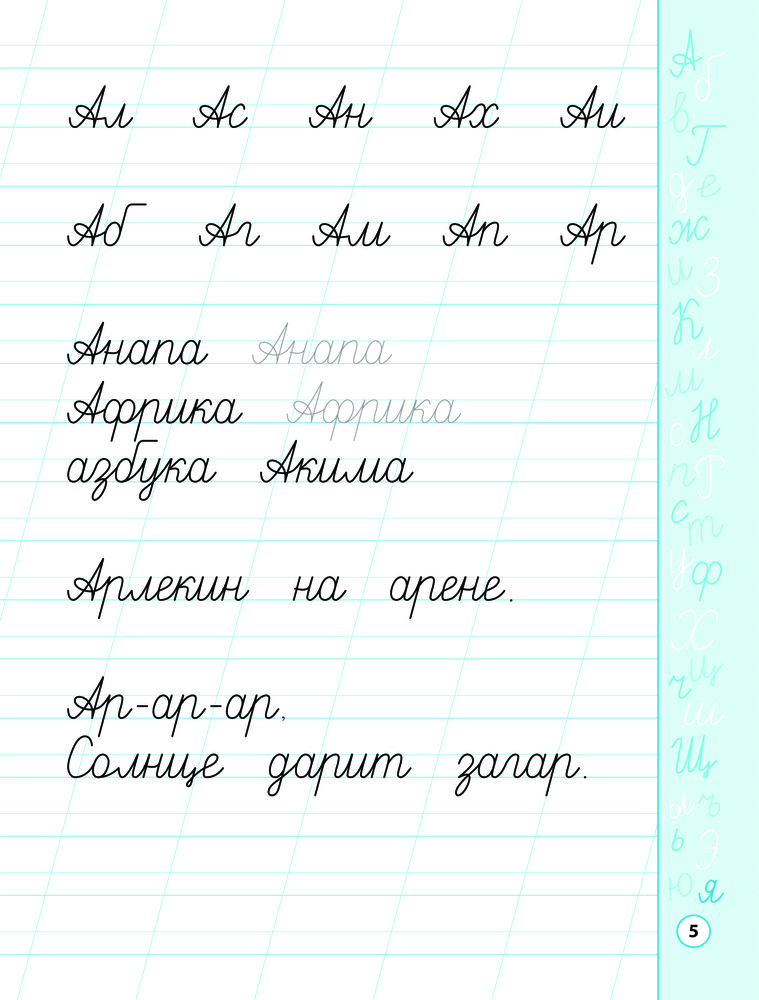 Ал Ас Ан Ах Аи
Аб Аг Ам Ап Ар
Анапа Анапа
Африка Африка
азбука Акима
Арлекин на арене.
Ар-ар-ар,
Солнце дарит загар.
А
б
в
Г
д е
ж
и З
К
л
м
о Н
п Г
с
т
у ф
Х
ч Щ
ш
Щ
ы ъ
ь Э
Ю я
5